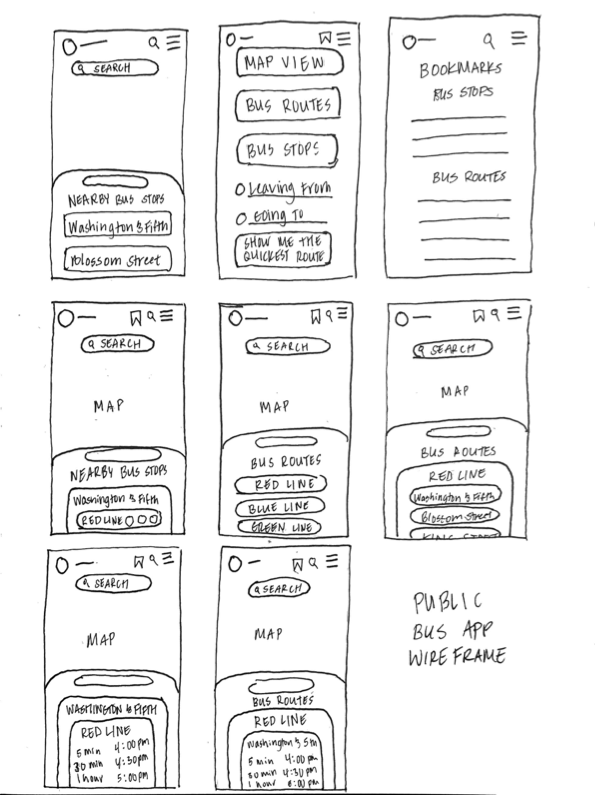 SEARCH
NEARBY BUS STOPS
Washington & Fifth
Blossom Street
MAP VIEW
BUS ROUTES
BUS STOPS
Leaving From
Going To
SHOW ME THE
QUICKEST ROUTE
BOOKMARKS
BUS STOPS
BUS ROUTES
SEARCH
MAP
NEARBY BUS STOPS
Washington & Fifth
RED LINE
SEARCH
MAP
BUS ROUTES
RED LINE
BLUE LINE
GREEN LINE
SEARCH
MAP
BUS ROUTES
RED LINE
Washington & Fifth
Blossom Street
KING STREET
SEARCH
MAP
WASHINGTON & FIFTH
RED LINE
5 min 4:00 pm
30 min 4:30 pm
1 hour 5:00 pm
SEARCH
MAP
BUS ROUTES
RED LINE
Washington & 5th
5 min 4:00 pm
30 min 4:30 pm
1 hour 5:00 pm
PUBLIC
BUS APP
WIREFRAME